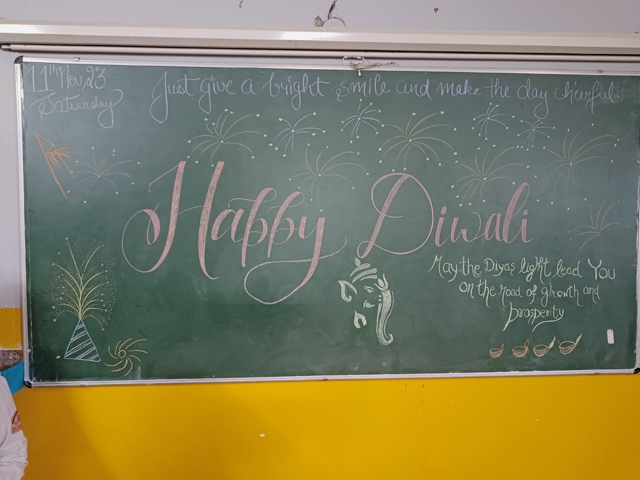 11th Nov 23
Saturday
Just give a bright smile and make the day cheerful
Happy Diwali
May the Diyas light lead You
on the road of growth and
prosperity